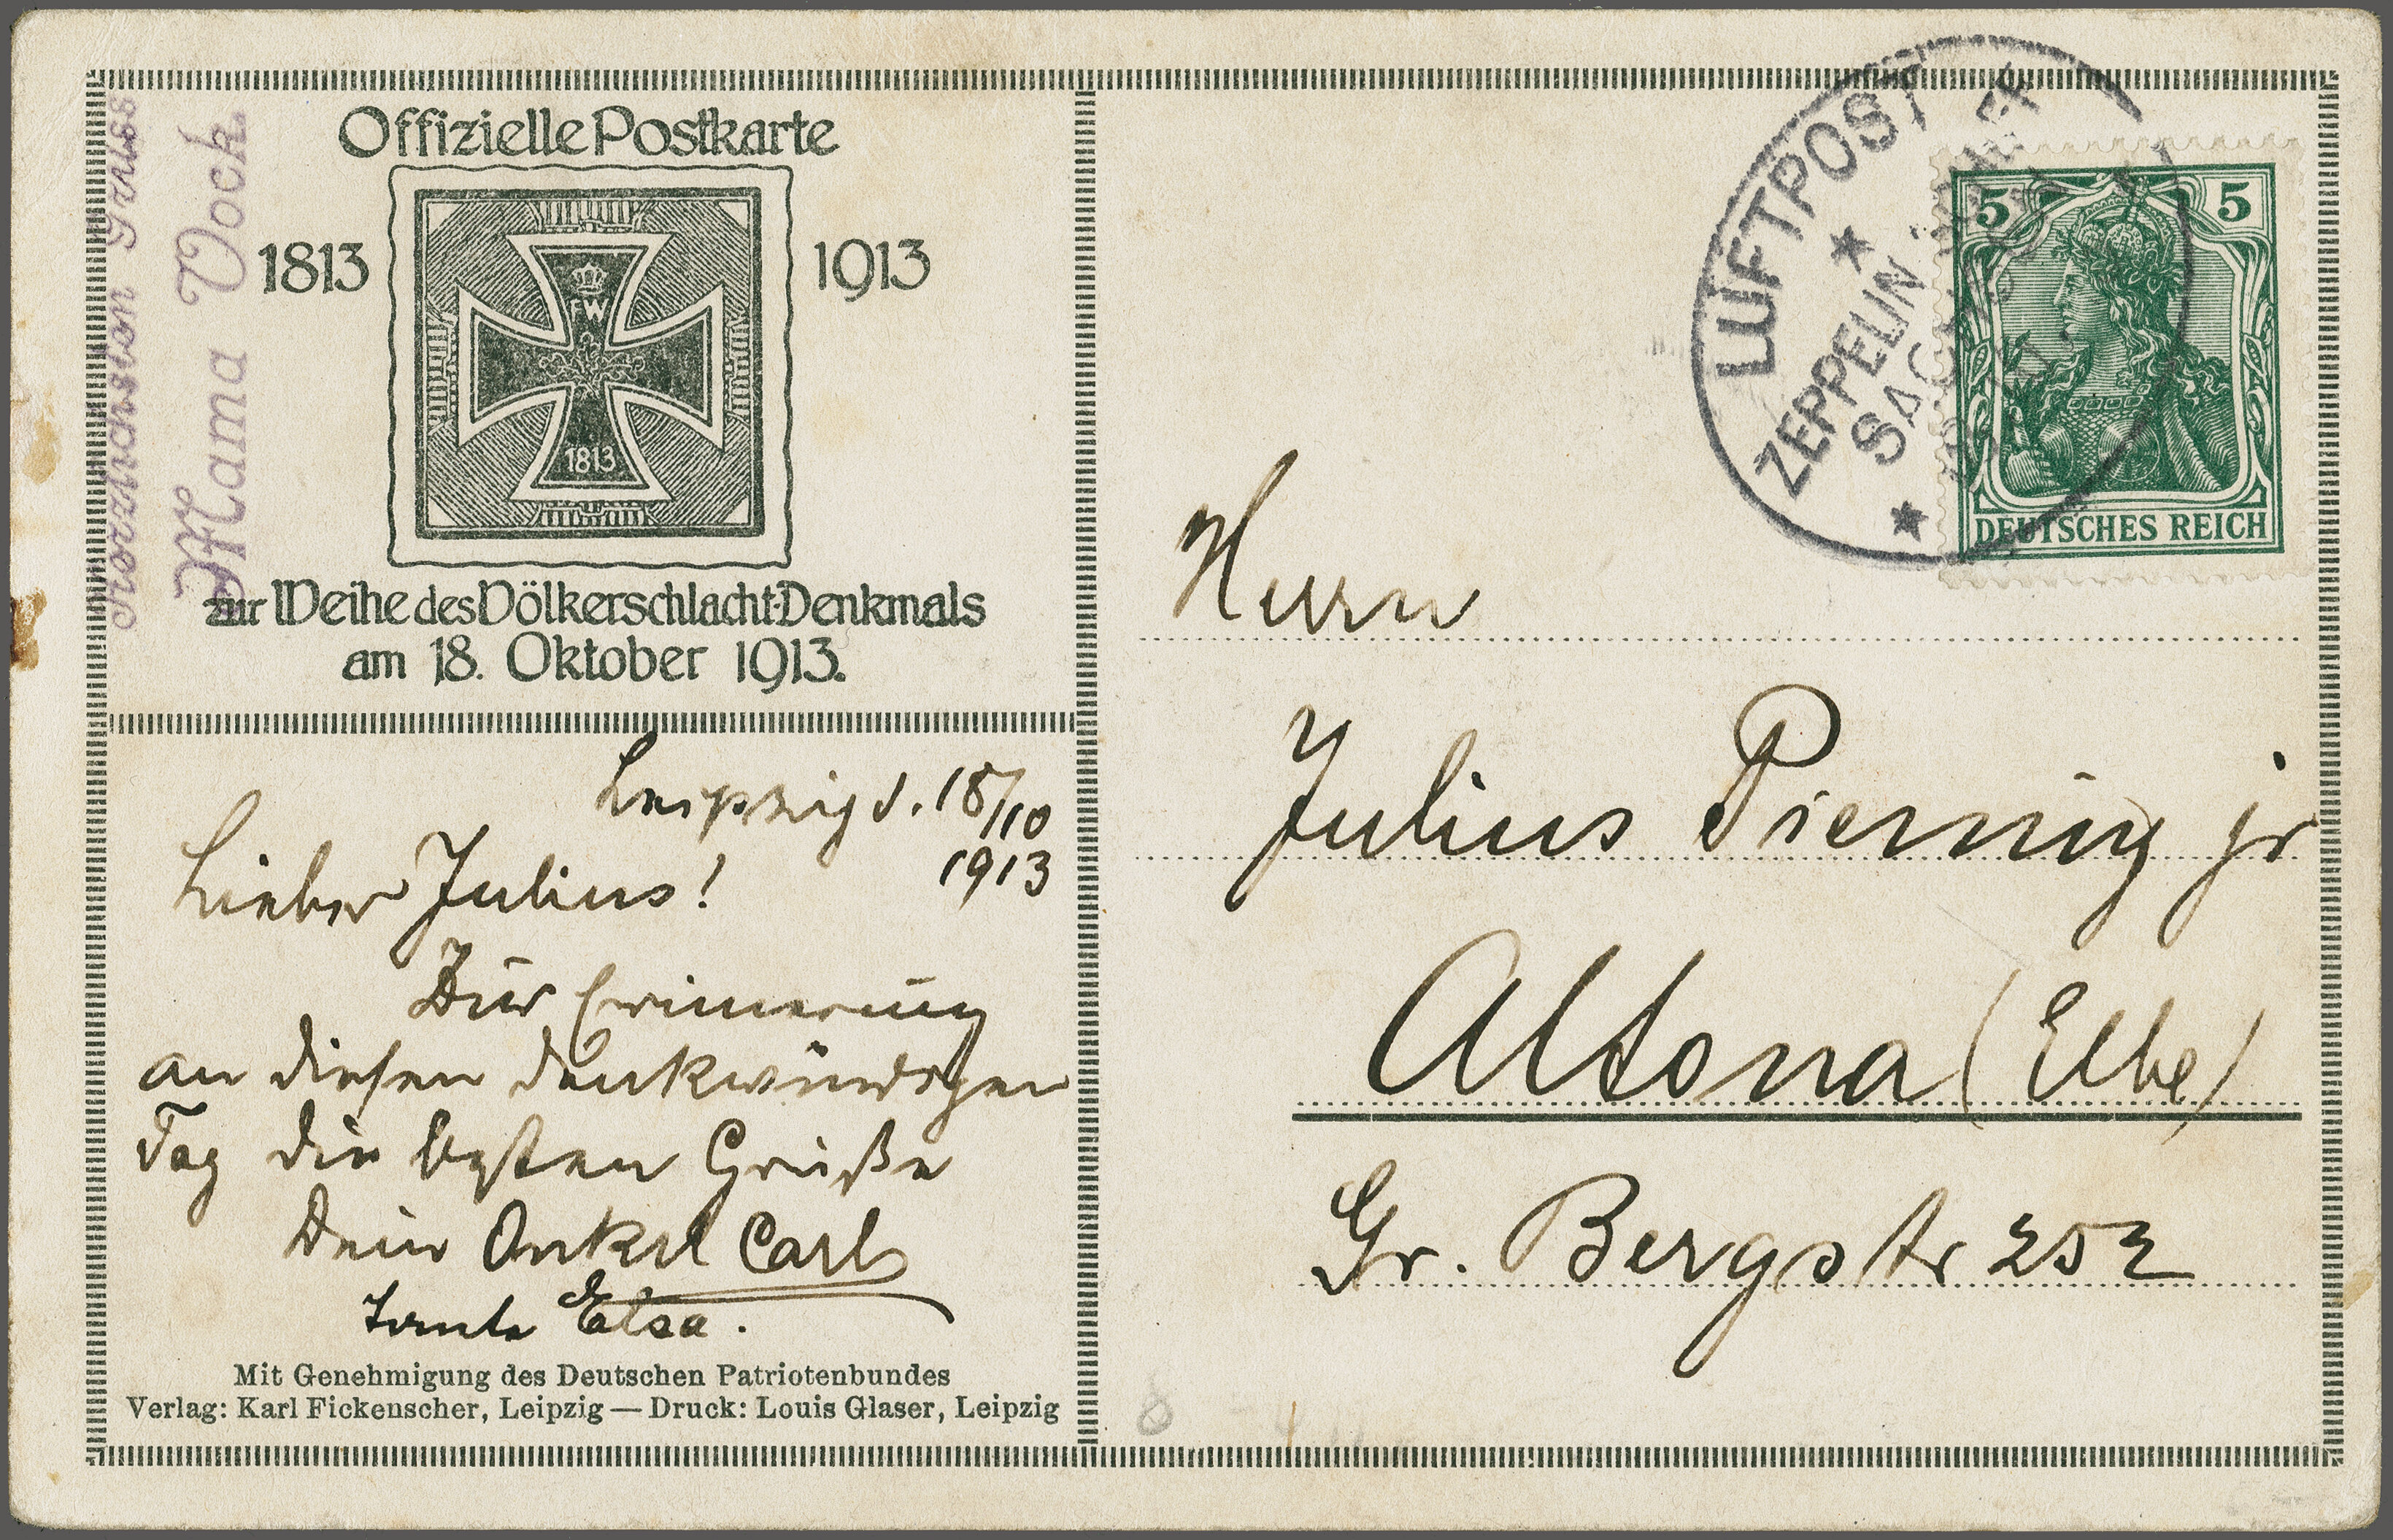 Offizielle Postkarte
1813
1913
FW
1813
zur Weihe des Völkerschlacht-Denkmals
am 18. Oktober 1913.
Gruss
Mama Vock.
Leipzig d. 18/10
1913
Lieber Julius!
Zur Erinnerung
an diesen denkwürdigen
Tag die besten Grüße
Dein Onkel Carl
Tante Elsa.
Mit Genehmigung des Deutschen Patriotenbundes
Verlag: Karl Fickenscher, Leipzig — Druck: Louis Glaser, Leipzig
LUFTPOST
ZEPPELIN
5 5
DEUTSCHES REICH
Herrn
Julius Piernig jr
Altona (Elbe)
Gr. Bergstr 252
8